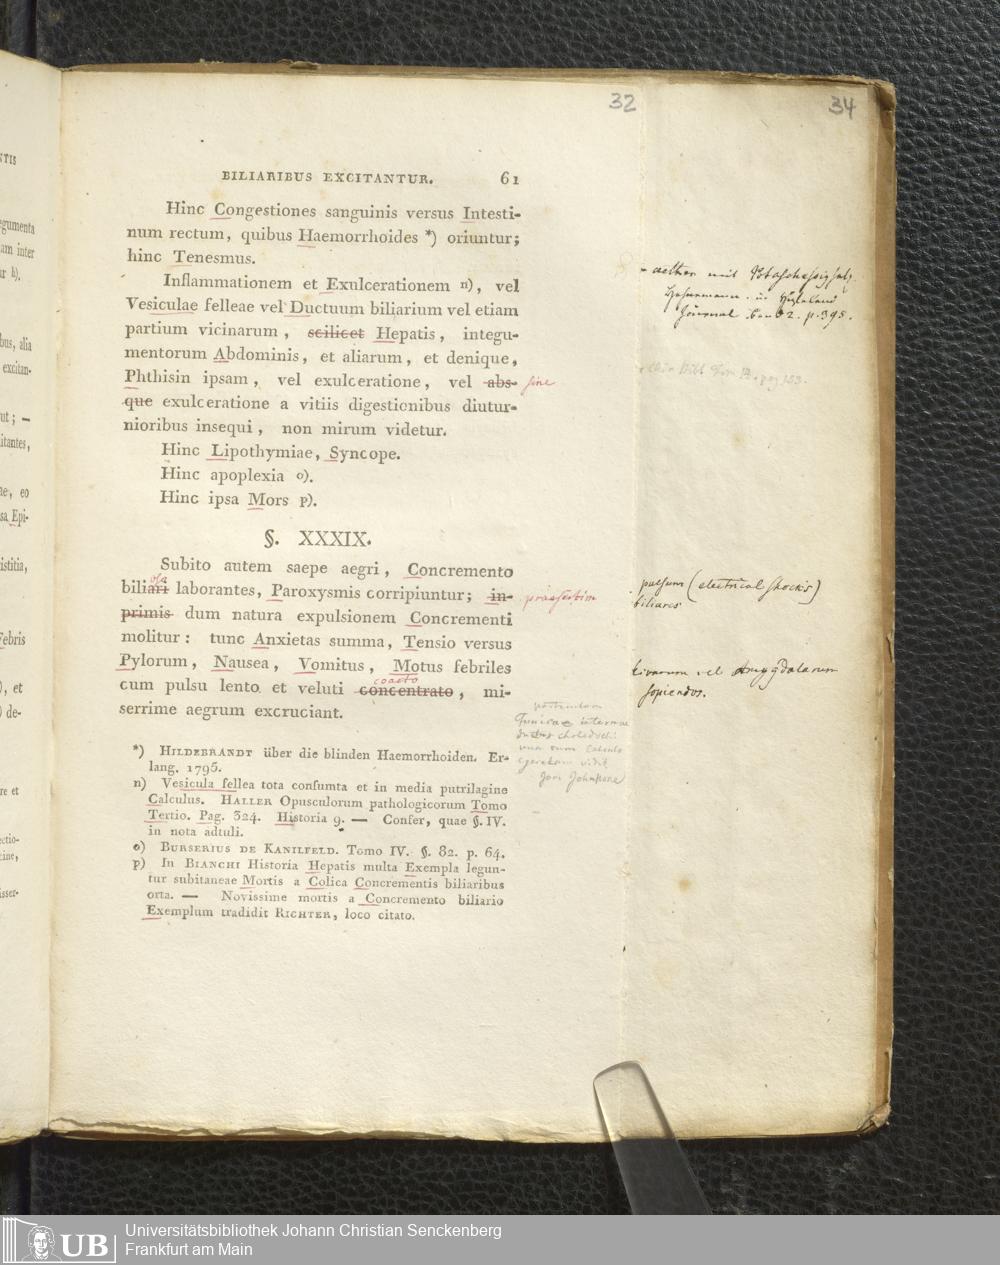 32
34
BILIARIBUS EXCITANTUR. 61
Hinc Congestiones sanguinis versus Intesti-
num rectum, quibus Haemorrhoides *) oriuntur;
hinc Tenesmus.
Inflammationem et Exulcerationem n), vel
Vesiculae felleae vel Ductuum biliarium vel etiam
partium vicinarum, scilicet Hepatis, integu-
mentorum Abdominis, et aliarum, et denique,
Phthisin ipsam, vel exulceratione, vel abs- sine
que exulceratione a vitiis digestionibus diutur-
nioribus insequi, non mirum videtur.
Hinc Lipothymiae, Syncope.
Hinc apoplexia o).
Hinc ipsa Mors p).
§. XXXIX.
Subito autem saepe aegri, Concremento
osa
biliari laborantes, Paroxysmis corripiuntur; in- praesertim
primis dum natura expulsionem Concrementi
molitur: tunc Anxietas summa, Tensio versus
Pylorum, Nausea, Vomitus, Motus febriles
coacto
cum pulsu lento et veluti concentrato, mi-
serrime aegrum excruciant.
*) HILDEBRANDT über die blinden Haemorrhoiden. Er-
lang. 1795.
n) Vesicula fellea tota consumta et in media putrilagine
Calculus. HALLER Opusculorum pathologicorum Tomo
Tertio. Pag. 324. Historia 9. — Confer, quae §. IV.
in nota adtuli.
o) BURSERIUS DE KANILFELD. Tomo IV. §. 82. p. 64.
p) In BIANCHI Historia Hepatis multa Exempla legun-
tur subitaneae Mortis a Colica Concrementis biliaribus
orta. — Novissime mortis a Concremento biliario
Exemplum tradidit RICHTER, loco citato.
aether mit
in Hufeland
Journal Band 2. p. 395.
pulsum (electrical shocks)
biliares
vel Amygdalarum
sopiendos.
Tunicae internae
ductus choledochi
cum calculo
egestam vidit
Johnstone
NTIS
egumenta
am inter
ur h).
bus, alia
excitan-
ut; —
itantes,
ae, eo
sa Epi-
istitia,
Febris
), et
) de-
re et
ectio-
cine,
isser-
UB
Universitätsbibliothek Johann Christian Senckenberg
Frankfurt am Main